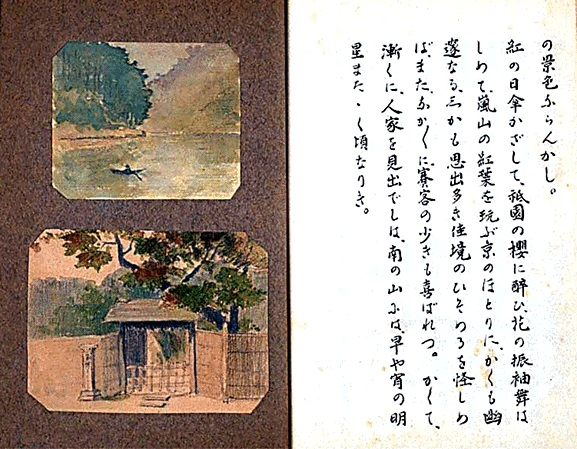 の景色ならんかし。
紅の日傘かざして、祇園の櫻に醉ひ、花の振袖舞は
しめて、嵐山の紅葉を玩ぶ京のほとりに、かくも幽
邃なる、しかも思出多き佳境のひそめるを怪しめ
ばまた、なか〱に賽客の少きも喜ばれつ。かくて、
漸くに、人家を見出でしは、南の山には、早や宵の明
星またゝく頃なりき。